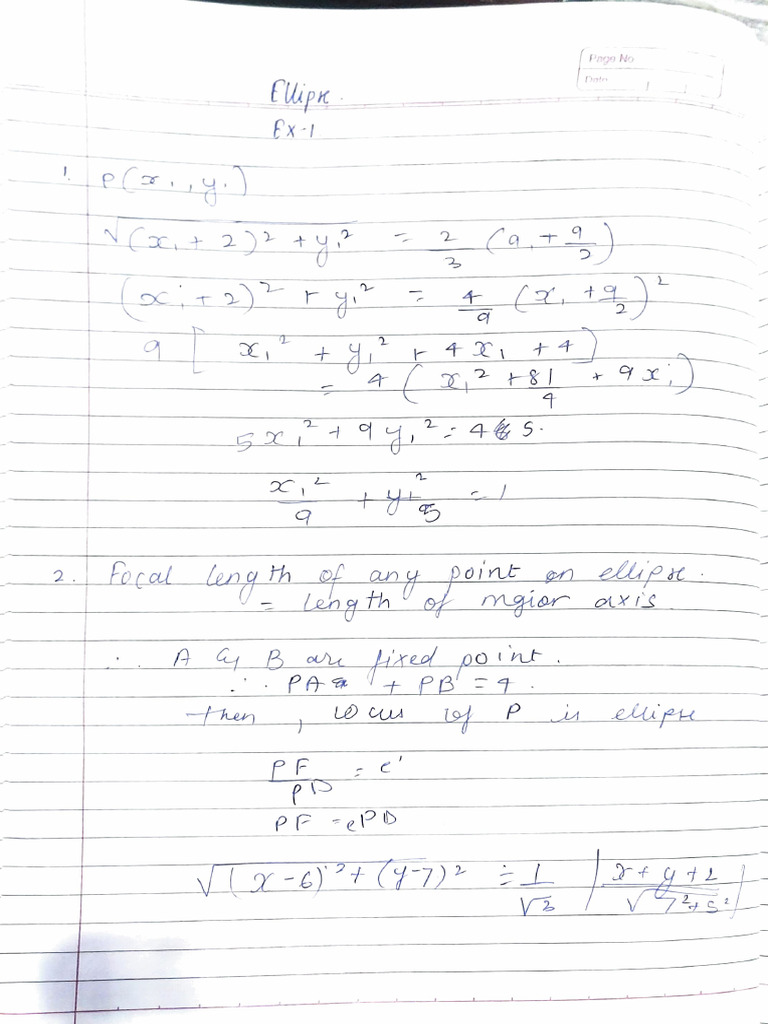 Page No
Date
Ellipse.
Ex-1
1. P(x₁, y₁)
√((x₁ + 2)² + y₁²) = 2/3 (9₁ + 9/2)
(x₁ + 2)² + y₁² = 4/9 (x₁ + 9/2)²
9 [x₁² + y₁² + 4x₁ + 4]
= 4 (x₁² + 81/4 + 9x₁)
5x₁² + 9y₁² = 45.
x₁²/9 + y₁²/5 = 1
2. Focal length of any point on ellipse.
= length of major axis.
∴ A & B are fixed point.
∴ PA + PB = 4.
then, locus of P is ellipse
PF/PD = e'
PF = ePD
√((x-6)² + (y-7)²) = 1/√3 |(x+y+2)/√(7²+5²)|